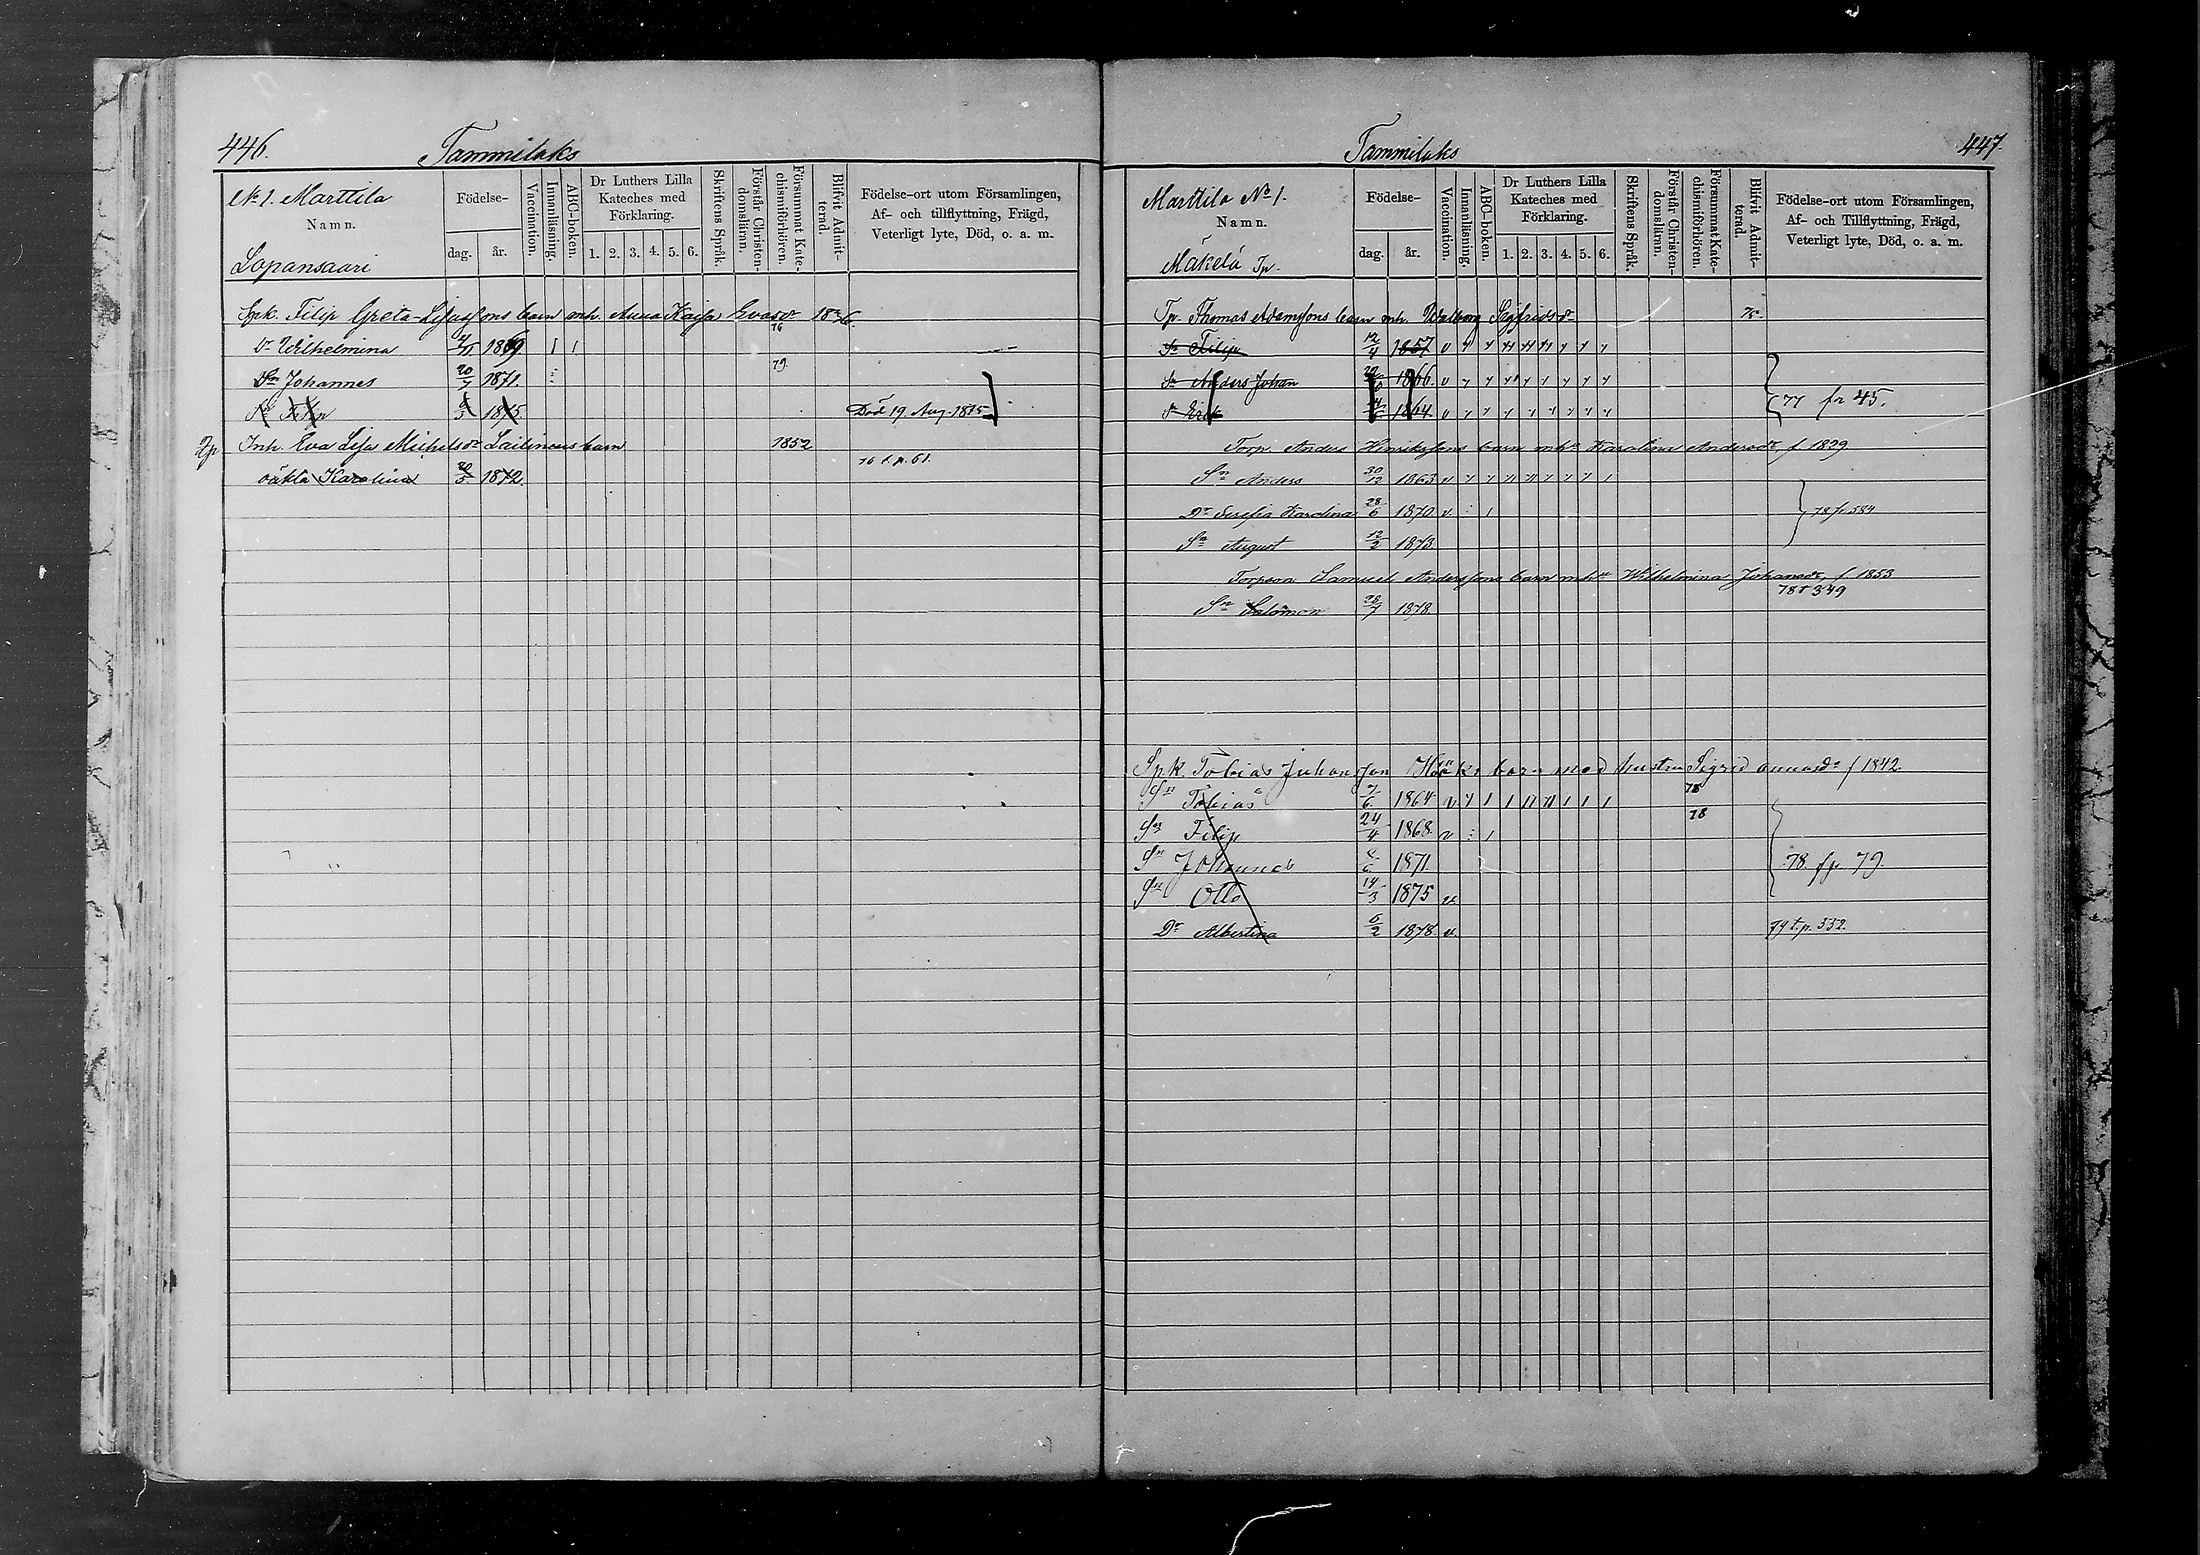 446.
Tammilaks
No 1. Marttila
Namn.
Lopansaari
Födelse-
dag.
år.
Vaccination.
Innanläsning.
ABC-boken.
Dr Luthers Lilla
Kateches med
Förklaring.
1. 2. 3. 4. 5. 6.
Skriftens Språk.
Förstår Christen-
domsläran.
Försummat Kate-
chismiförhören.
Blifvit Admit-
terad.
Födelse-ort utom Församlingen,
Af- och tillflyttning, Frägd,
Veterligt lyte, Död, o. a. m.
Spk. Filip Greta-Lisasons barn mh. Anna Kaisa Evasdr 1836
76
Dr Wilhelmina 1869
79
Sn Johannes 20/7 1871.
Sn 1875. Död 19. Aug. 1875
Inh. Eva Lisa Michelsdr Lailinens barn 1852
oäkta Karolina 20/3 1872. 76 t.p. 61.
447.
Tammilaks
Marttila No 1.
Namn.
Mäkelä Tp.
Födelse-
dag.
år.
Vaccination.
Innanläsning.
ABC-boken.
Dr Luthers Lilla
Kateches med
Förklaring.
1. 2. 3. 4. 5. 6.
Skriftens Språk.
Förstår Christen-
domsläran.
Försummat Kate-
chismiförhören.
Blifvit Admit-
terad.
Födelse-ort utom Församlingen,
Af- och Tillflyttning, Frägd,
Veterligt lyte, Död, o. a. m.
Tp. Thomas Adamsons barn mh. Walborg Sigfridsdr
Sn Filip 12/4 1857 v
Sn Anders Johan 1866. v
Sn Erik 1864. v
77 fr 45.
Torp. Anders Henrikssons barn mhu Karolina Andersdr, f 1829
Sn Anders 30/12 1863 v
Dr Serafia Karolina 28/6 1870 v. 78 fr. 584
Sn August 12/2 1873.
Torpson Samuel Anderssons barn mhu Wilhelmina Johansdr, f 1853
78 t 349
Sn Salomon 28/7 1878.
Spk. Tobias Johansson Hööks barn med hustru Sigrid Annasdr f 1842
78
Sn Tobias 7/6 1864 v
78
Sn Filip 24/4 1868. v
Sn Johannes 8/6 1871.
78 fr. 79.
Sn Otto 14/3 1875 v.
Dr Albertina 6/2 1878. v. 79 t.p. 332.